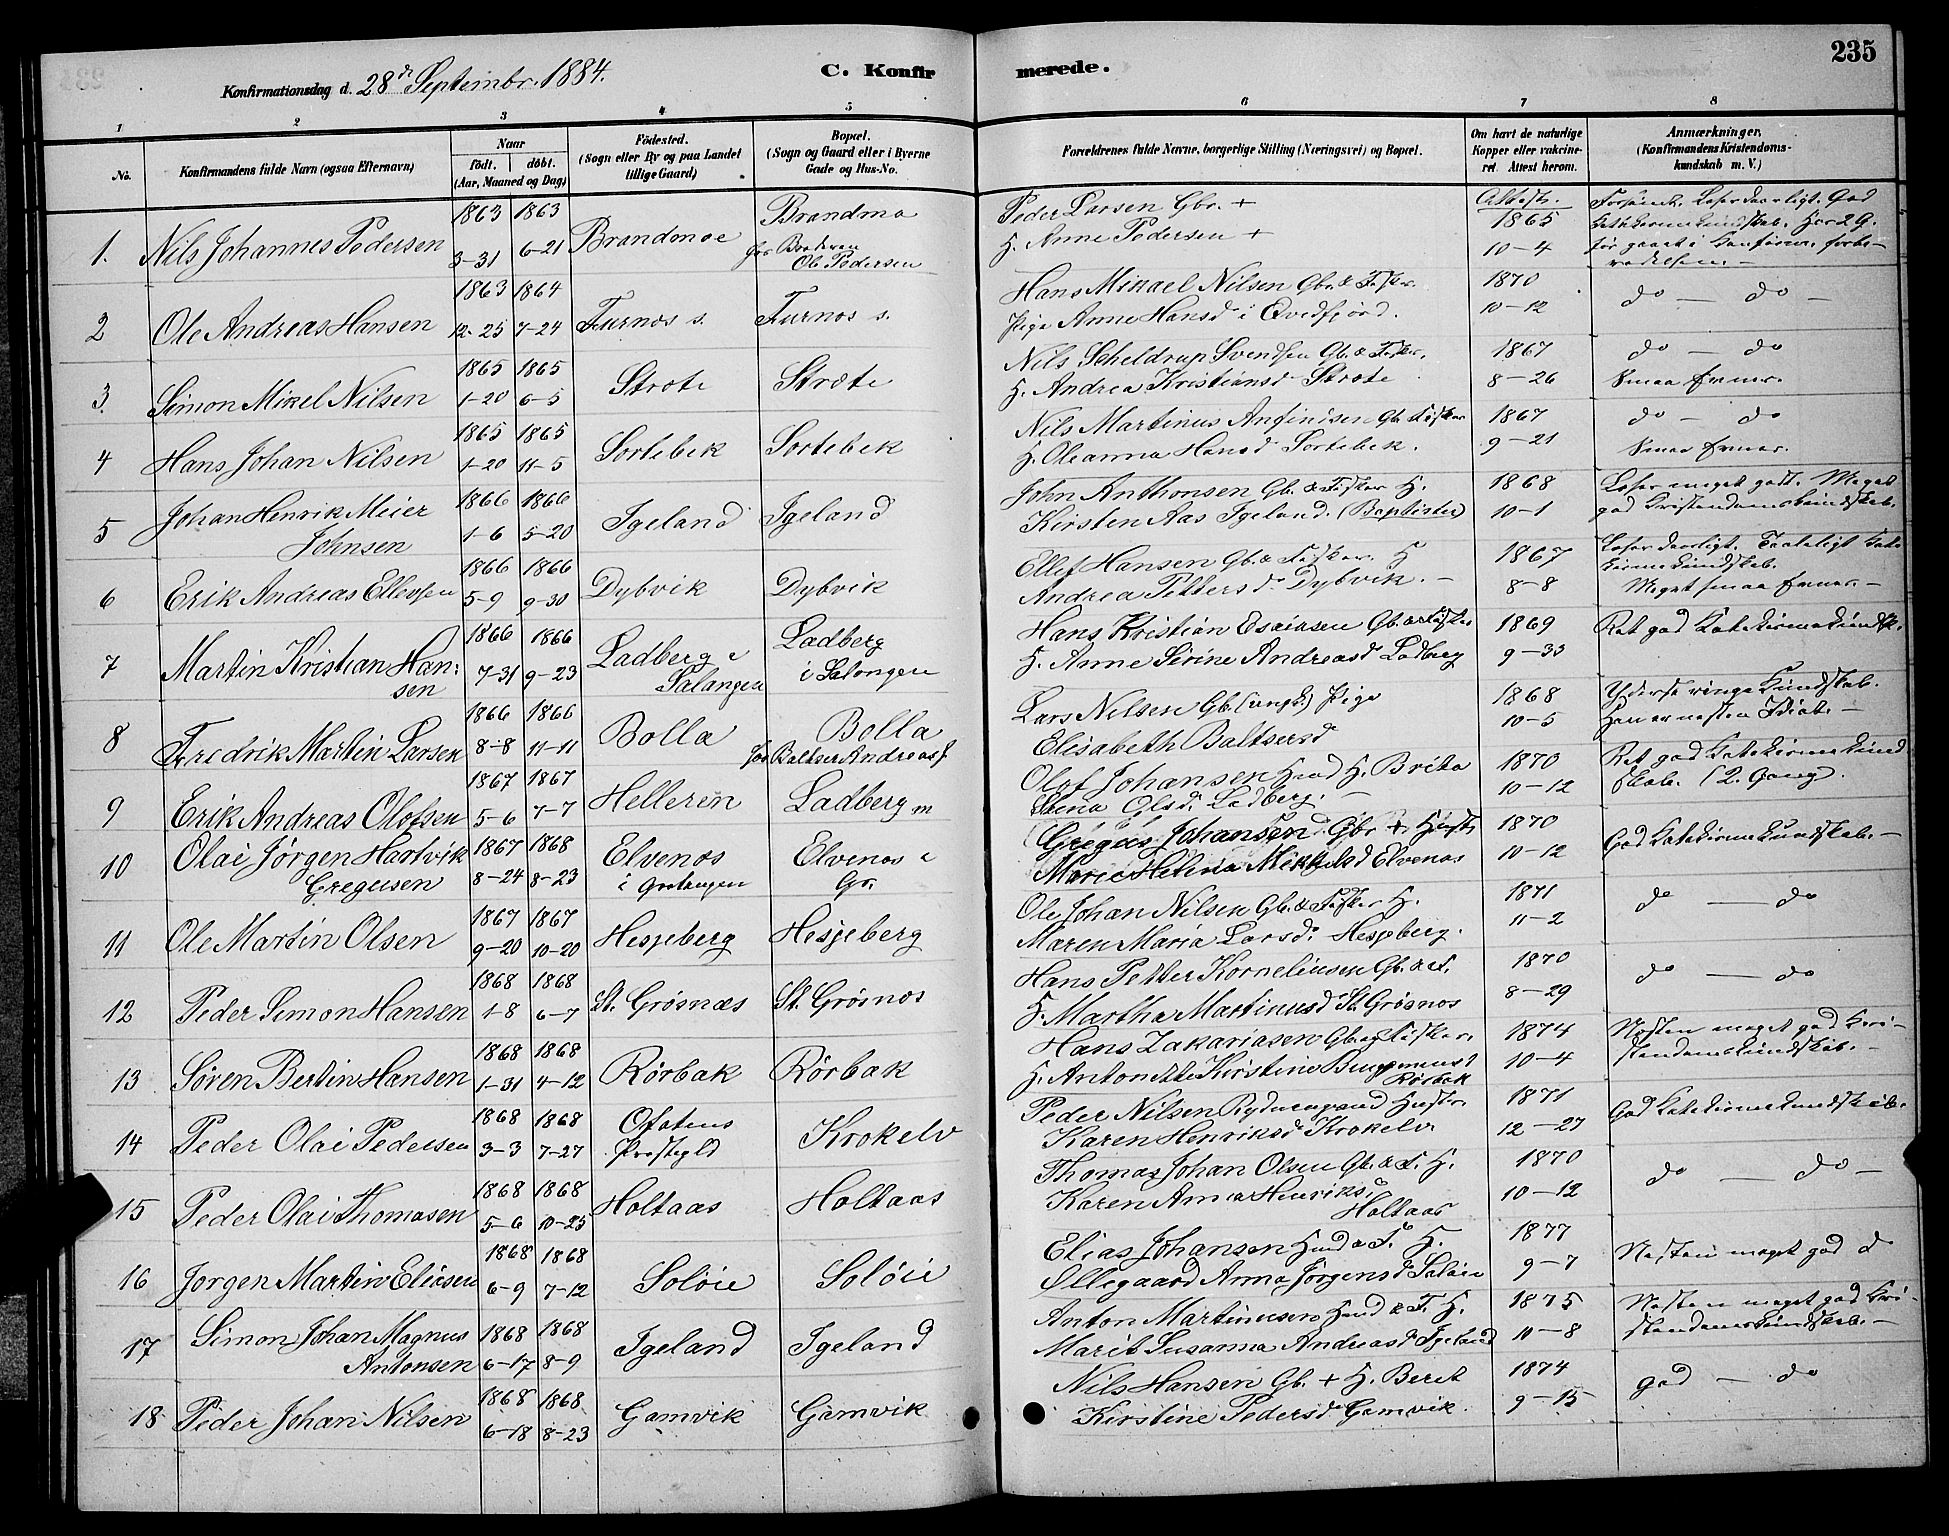 235
Konfirmationsdag d. 28de Septembr. 1884.
C. Konfirmerede.
1 2 3 4 5 6 7 8
No. Konfirmandens fulde Navn (ogsaa Efternavn) Naar født. døbt. (Aar, Maaned og Dag) Fødested. (Sogn eller By og paa Landet tillige Gaard) Bopæl. (Sogn og Gaard eller i Byerne Gade og Hus-No. Forældrenes fulde Navne, borgerlige Stilling (Næringsvei) og Bopæl. Om havt de naturlige Kopper eller vakcineret. Attest herom. Anmærkninger. (Konfirmandens Kristendomskundskab m. V.)
1. Nils Johannes Pedersen 1863 3-31 1863 6-21 Brandmoe Brandmo
hos Broderen Ol. Pedersen
Peder Larsen Gbr. +
H. Anne Pedersen +
Attest. 1865 10-4
2 Ole Andreas Hansen 1863 12-25 1864 7-24 Furnes s. Furnes s.
Hans Mikael Nilsen Gbr. & Fisker.
Pige Anne Hansd i Qvedfjord.
1870 10-12 do — do —
3. Simon Mikel Nilsen 1865 1-20 1865 6-5 Strøte Strøte
Nils Scheldrup Svendsen Gb. & Fisker.
H. Andrea Kristiansd Strøte
1867 8-26 do — do
Smaa Evner.
4 Hans Johan Nilsen 1865 1-20 1865 11-5 Sortebek Sortebek
Nils Martinus Anfindsen Gb. & Fisker
H. Oleanna Hansd Sortebek.
1867 9-21 do — do
Smaa Evner.
5 Johan Henrik Meier Johnsen 1866 1-6 1866 5-20 Igeland Igeland
John Anthonsen Gb. & Fisker H.
Kirsten Aas Igeland. (Baptister)
1868 10-1 Læser meget godt. Meget
god Kristendomskundskab.
6 Erik Andreas Ellevsen 1866 5-9 1866 9-30 Dybvik Dybvik
Ellef Hansen Gb. & Fisker. H
Andrea Pettersd Dybvik. —
1867 8-8 Læser daarligt. Taaleligt Kate
kismekundskab.
Meget smaa Evner. —
7 Martin Kristian Hansen 1866 7-31 1866 9-23 Ladberg i Salangen Ladberg i Salangen
Hans Kristian Esaiasen Gb. & Fisker
H. Anne Serine Andreasd Ladberg
1869 9-33 Ret god Katekismekundsk.
8 Fredrik Martin Larsen 1866 8-8 1866 11-11 Bolla Bolla
hos Baltser Andreas f.
Lars Nilsen Gb. (ungk.) Pige
Elisabeth Baltsersd
1868 10-5 Yderst ringe Kundskab.
Han er næsten Idiot. —
9 Erik Andreas Olofsen 1867 5-6 1867 7-7 Helleren Ladberg m
Olof Johansen Hmd H. Brita
Stina Olsd. Ladberg. —
1870 10-12 Ret god Katekismekund
skab. (2. Gang).
10 Olai Jørgen Hartvik Gregusen 1867 8-24 1868 8-23 Elvenes i Gratangen Elvenes i Gr.
Gregus Johansen Gbr + Hustr.
Marie Helena Mikkelsd Elvenes
1870 10-12 God Katekismekundskab. —
11 Ole Martin Olsen 1867 9-20 1867 10-20 Hesjeberg Hesjeberg
Ole Johan Nilsen Gb. & Fisker H.
Maren Maria Larsd. Hesjeberg.
1871 11-2 do — do
12 Peder Simon Hansen 1868 1-8 1868 6-7 St. Grøsnæs St. Grøsnæs
Hans Petter Kornelinsen Gb. & F.
H. Martha Martinusd St. Grøsnæs
1870 8-29 do — do
13 Søren Bertin Hansen 1868 1-31 1868 4-12 Rørbak Rørbak
Hans Zakariasen Gb. & Fisker.
H. Antonette Kirstine Rørbak
1874 10-4 Næsten meget god Kri-
stendomskundskab. —
14 Peder Olai Pedersen 1868 3-3 1868 7-27 Ofotens Prestegld Krokelv
Peder Nilsen Rydningsmand Hustr.
Karen Henriksd Krokelv
1871 12-27 God Katekismekundskab.
15 Peder Olai Thomasen 1868 5-6 1868 10-25 Holtaas Holtaas
Thomas Johan Olsen Gb. & F. H.
Karen Anna Henriksd Holtaas
1870 10-12 do — do —
16 Jørgen Martin Eliesen 1868 6-9 1868 7-12 Soløie Soløie
Elias Johansen Hmd & F. H.
Øllegaard Anna Jørgensd Soløie
1877 9-7 Næsten meget god do
17 Simon Johan Magnus Antonsen 1868 6-17 1868 8-9 Igeland Igeland
Anton Martinusen Hmd & F. H.
Marit Susanna Andreasd Igeland
1875 10-8 Næsten meget god Kri-
stendomskundskab. —
18 Peder Johan Nilsen 1868 6-18 1868 8-23 Gamvik Gamvik
Nils Hansen Gb. + H. Beret
Kirstine Pedersd Gamvik.
1874 9-15 god — do